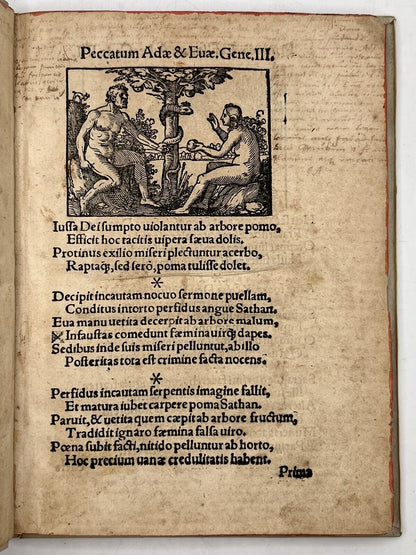 Peccatum Adæ & Euæ. Gene. III.
Iussa Dei sumpto uiolantur ab arbore pomo,
Efficit hoc tacitis uipera sæua dolis.
Protinus exilio miseri plectuntur acerbo,
Raptaq;, sed serò, poma tulisse dolet.
*
Decipit incautam nocuo sermone puellam,
Conditus intorto perfidus angue Sathan.
Eua manu uetita decerpit ab arbore malum,
Infaustas comedunt fæmina uirq; dapes.
Sedibus inde suis miseri pelluntur, ab illo
Posteritas tota est crimine facta nocens.
*
Perfidus incautam serpentis imagine fallit,
Et matura iubet carpere poma Sathan.
Paruit, & uetita quem cæpit ab arbore fructum,
Tradidit ignaro fæmina falsa uiro.
Pœna subit facti, nitido pelluntur ab horto,
Hoc precium uanæ credulitatis habent.
Prima